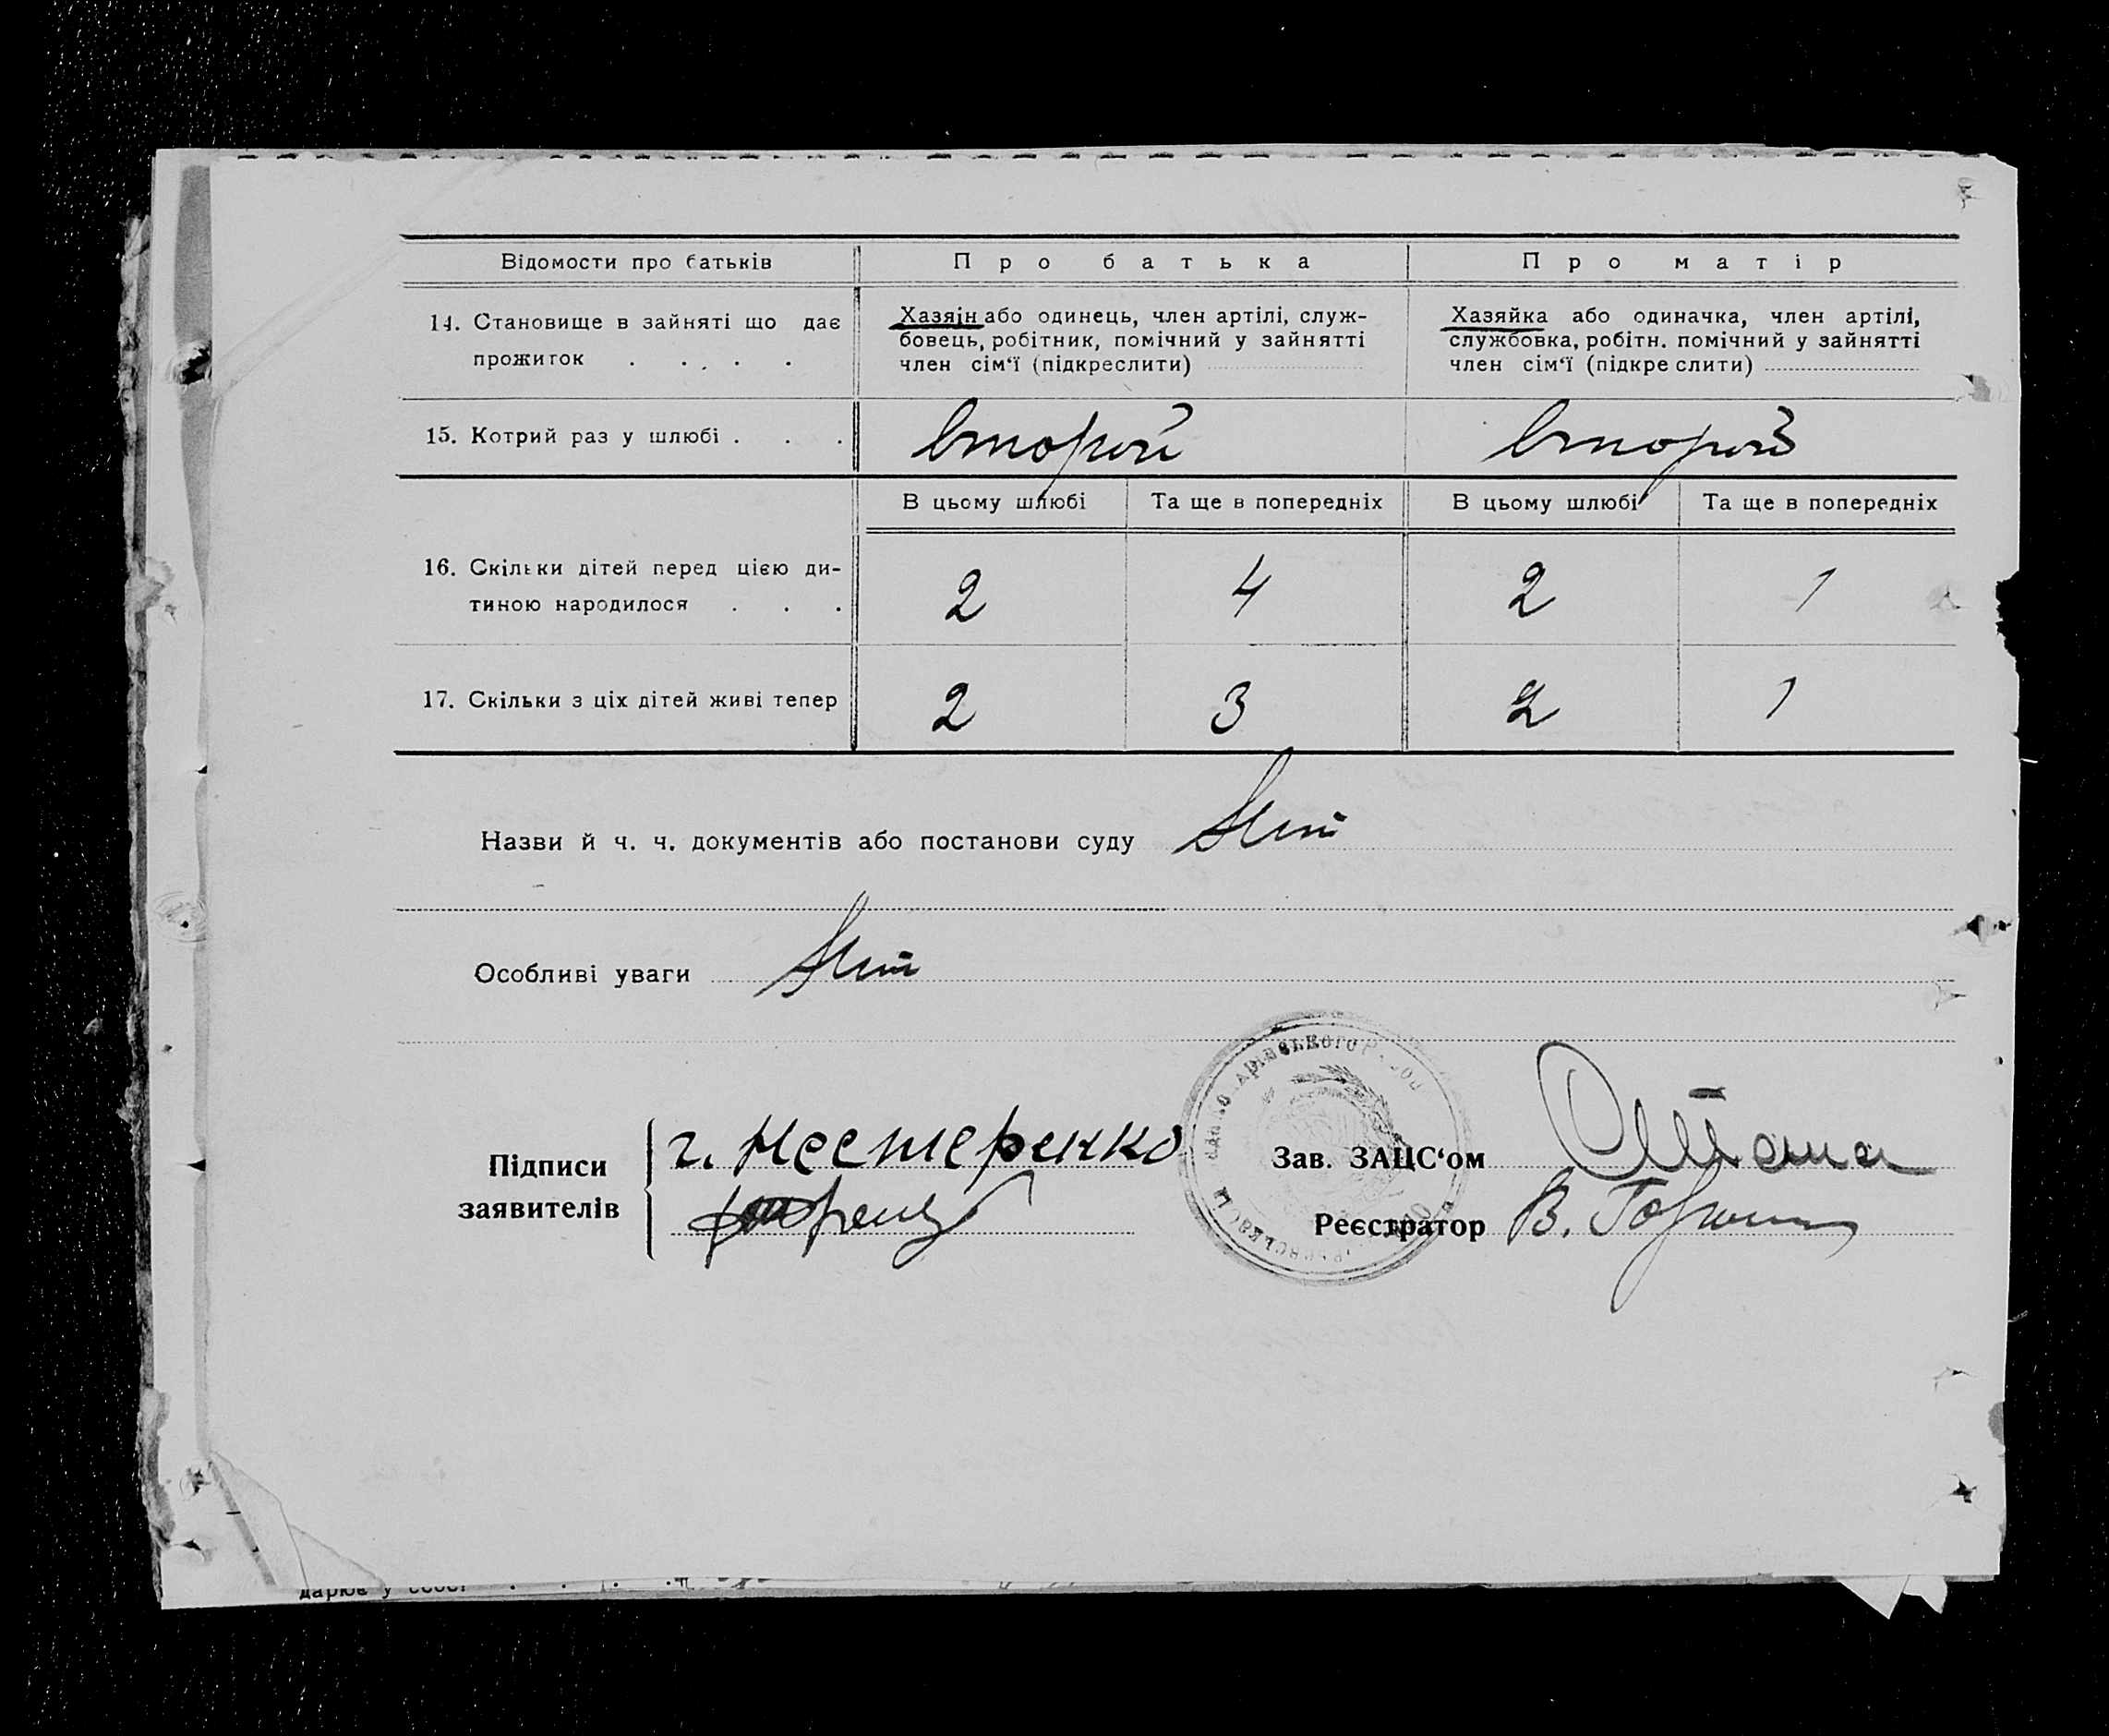 Відомости про батьків
Про батька
Про матір
14. Становище в зайняті що дає
прожиток . . . . .
Хазяїн або одинець, член артілі, служ-
бовець, робітник, помічний у зайнятті
член сім‘ї (підкреслити)
Хазяйка або одиначка, член артілі,
службовка, робітн. помічний у зайнятті
член сім‘ї (підкреслити)
15. Котрий раз у шлюбі . . .
второй
второй
В цьому шлюбі
Та ще в попередніх
В цьому шлюбі
Та ще в попередніх
16. Скільки дітей перед цією ди-
тиною народилося . . .
2
4
2
1
17. Скільки з ціх дітей живі тепер
2
3
2
1
Назви й ч. ч. документів або постанови суду Нет
Особливі уваги Нет
Підписи
заявителів
г. Нестеренко
Зав. ЗАЦС‘ом
Реєстратор В.
дарює у